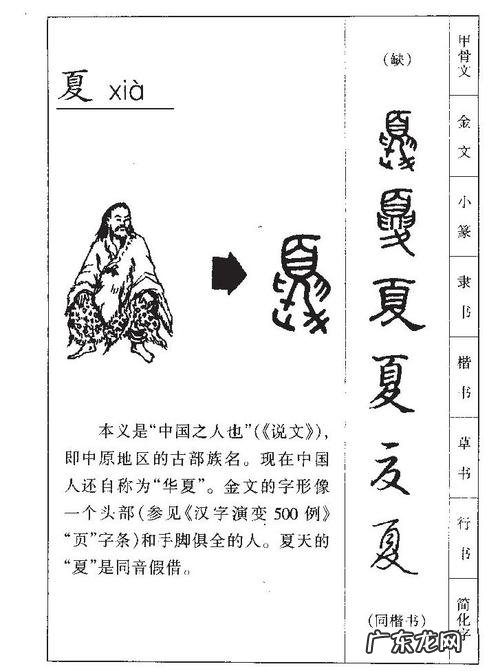 夏 xià
本义是“中国之人也”(《说文》),
即中原地区的古部族名。现在中国
人还自称为“华夏”。金文的字形像
一个头部(参见《汉字演变 500 例》
“页”字条)和手脚俱全的人。夏天的
“夏”是同音假借。
(缺)
夏
夏
夏
夏
夏
夏
(同楷书)
甲骨文
金文
小篆
隶书
楷书
草书
行书
简化字
广东龙网